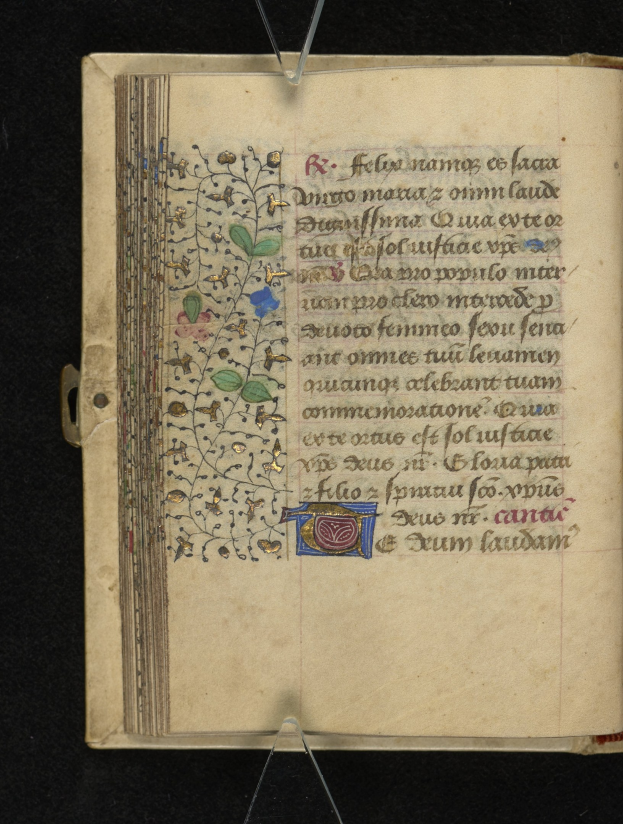 ℟. Felix namqꝫ es sacra
virgo maria ⁊ omni laude
dignissima Quia ex te or
tus est sol iusticie xp̄c de⁹
nr̄ ℣ Ora pro populo inter
ueni pro clero intercede p̄
deuoto femineo sexu senci
ant omnes tuū leuamen
quicunqꝫ celebrant tuam
commemoratione᷒. Quia
ex te ortus est sol iusticie
xp̄s deus nr̄. Gloria patri
⁊ filio ⁊ spiritui scō. xp̄us
deus nr̄. cantic̄
TE deum laudam⁹